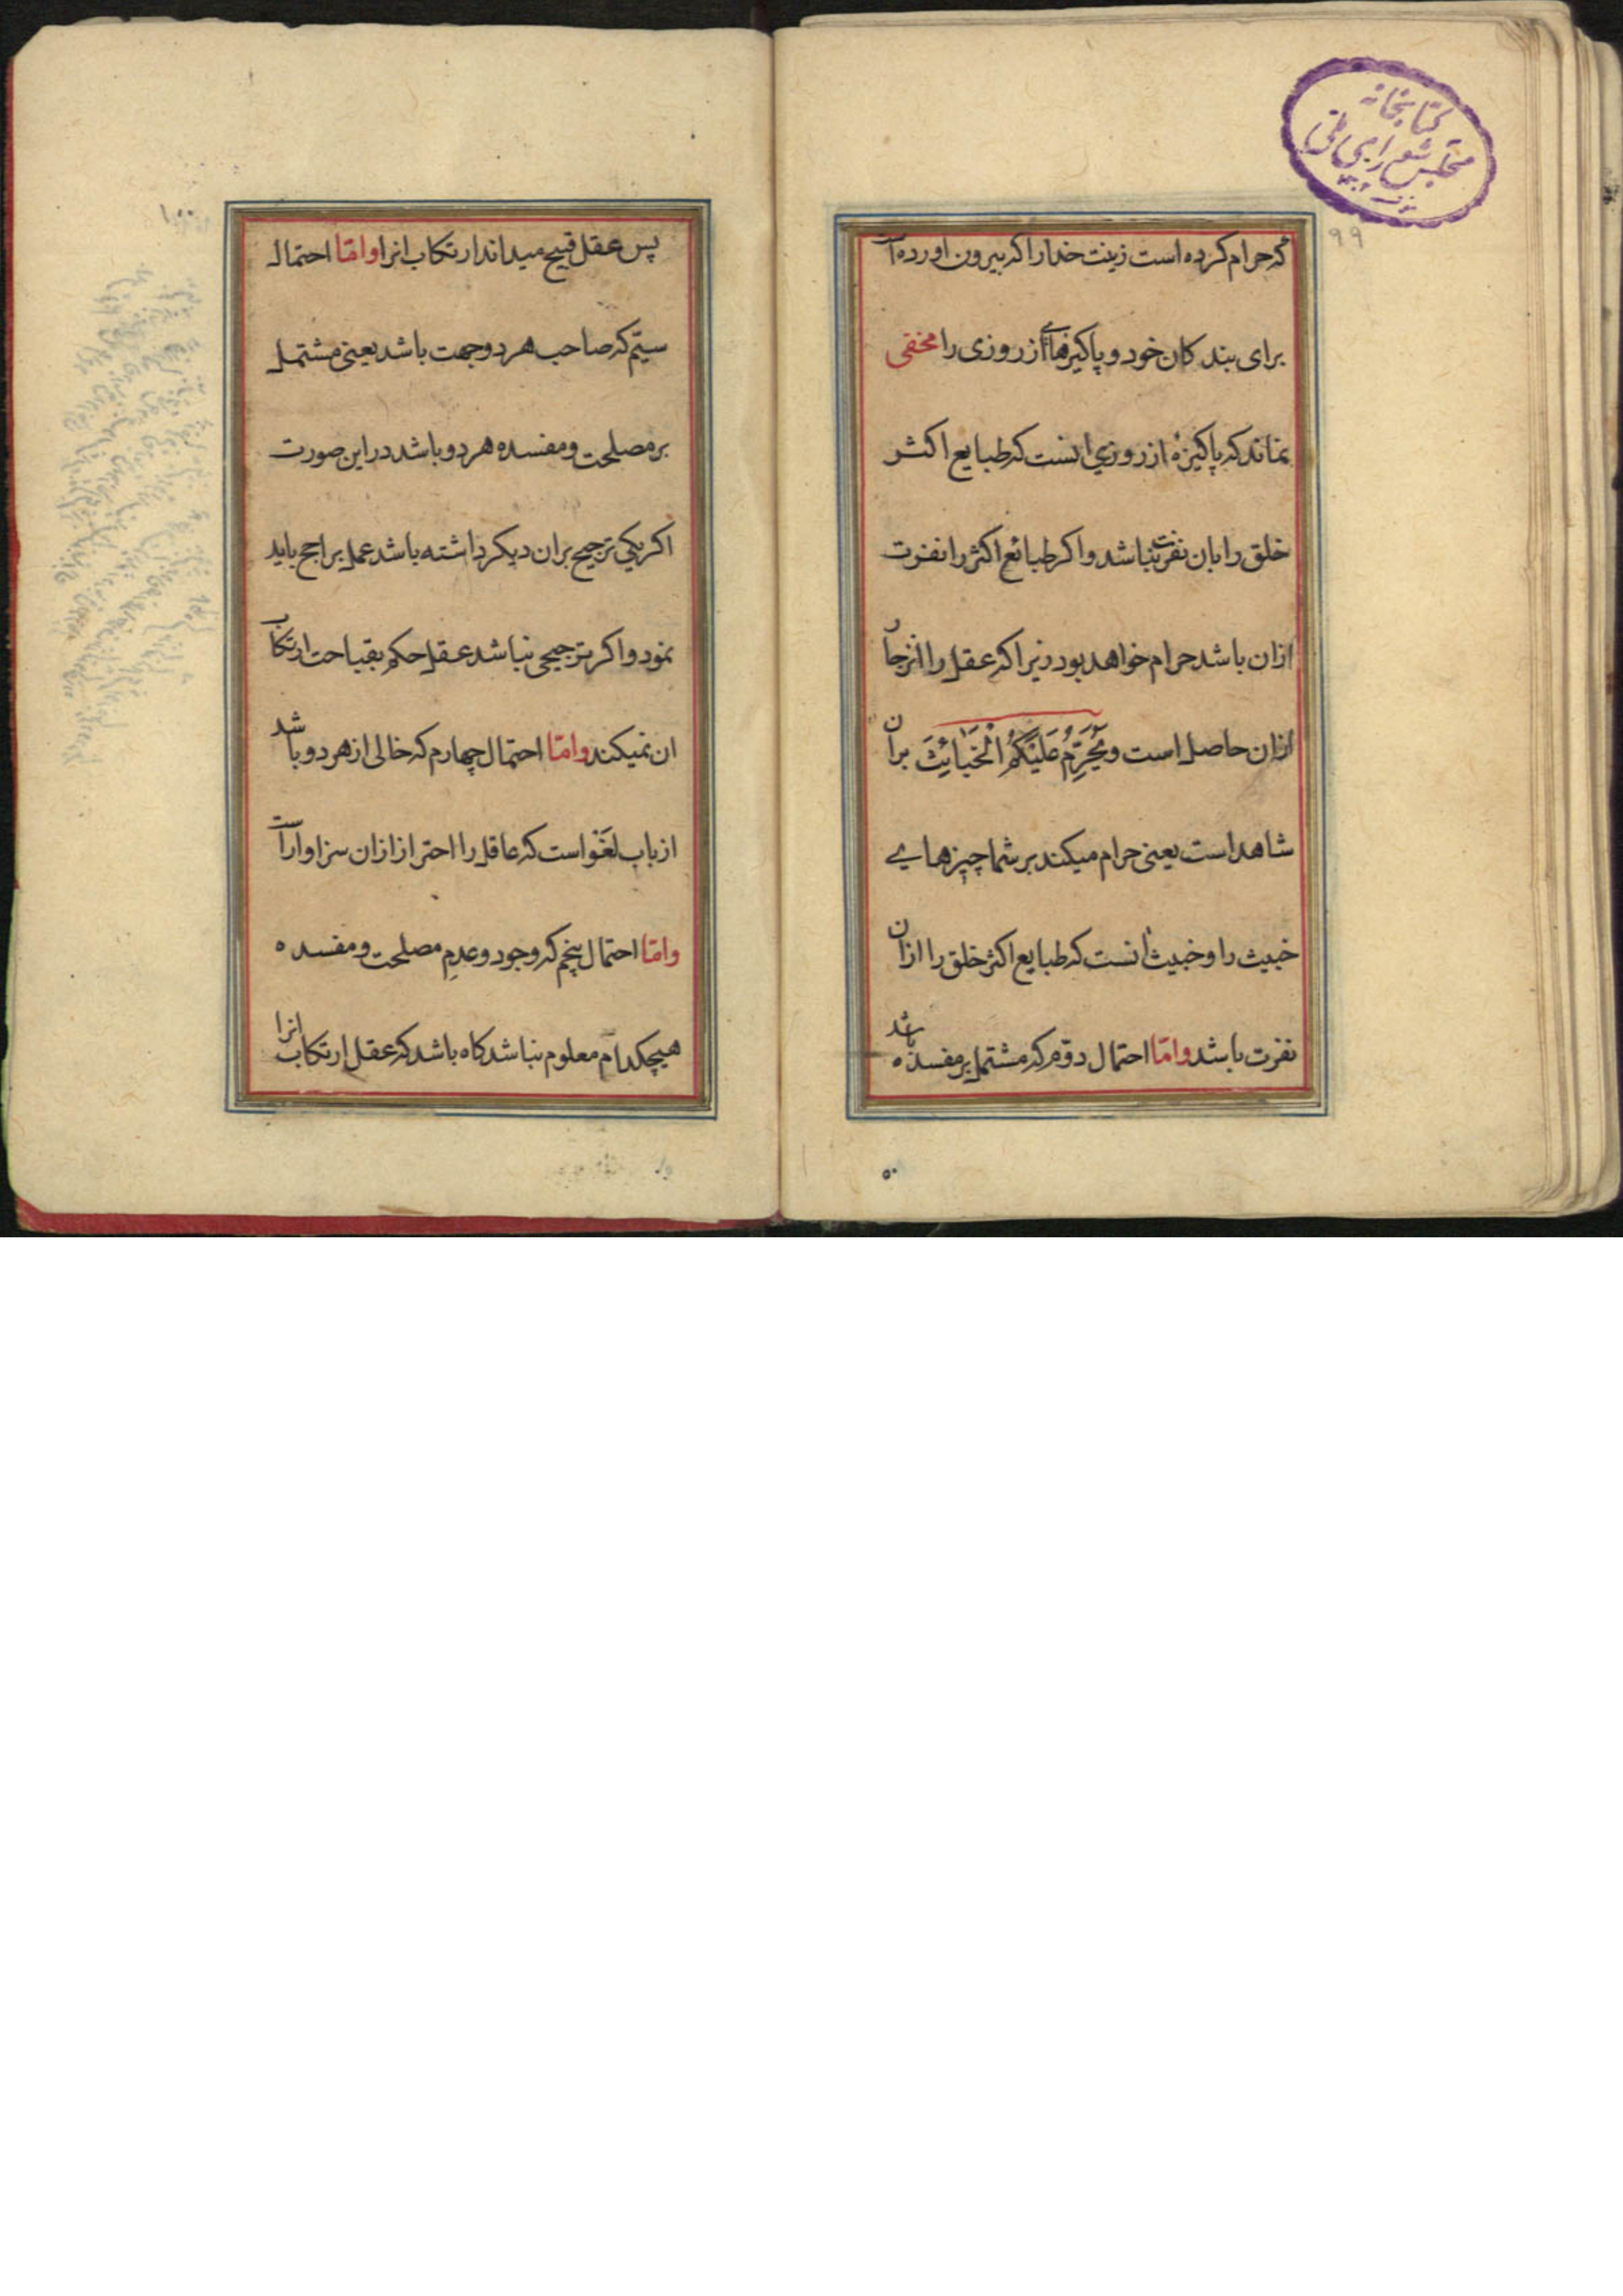 کتابخانه
مجلس شورای ملی
۹۹
که حرام کرده است زینت خدارا که بیرون اورده است
برای بندکان خود و پاکیزهای از روزی را مخفی
نماند که پاکیزهٔ از روزی انست که طبایع اکثر
خلق را بان نفرت نباشد و اکر طبائع اکثر را نفرت
ازان باشد حرام خواهد بود زیرا که عقل را انزجار
ازان حاصل است وَیُحَرِّمُ عَلَیْکُمُ الْخَبَائِثَ بران
شاهد است یعنی حرام میکند بر شما چیزهای
خبیث را و خبیث انست که طبایع اکثر خلق را ازان
نفرت باشد و امّا احتمال دوّم که مشتمل بر مفسده باشد
۵۰
۱۰۰
پس عقل قبیح میداند ارتکاب انرا و امّا احتمال
سیّم که صاحب هر دو جهت باشد یعنی مشتمل
بر مصلحت و مفسده هر دو باشد در این صورت
اکر یکی ترجیح بران دیکر داشته باشد عمل براجح باید
نمود و اکر ترجیحی نباشد عقل حکم بقباحت ارتکاب
ان نمیکند و امّا احتمال چهارم که خالی از هر دو باشد
از باب لغو است که عاقل را احتراز ازان سزاوار است
و امّا احتمال پنجم که وجود و عدم مصلحت و مفسده
هیچکدام معلوم نباشد کاه باشد که عقل ارتکاب انرا